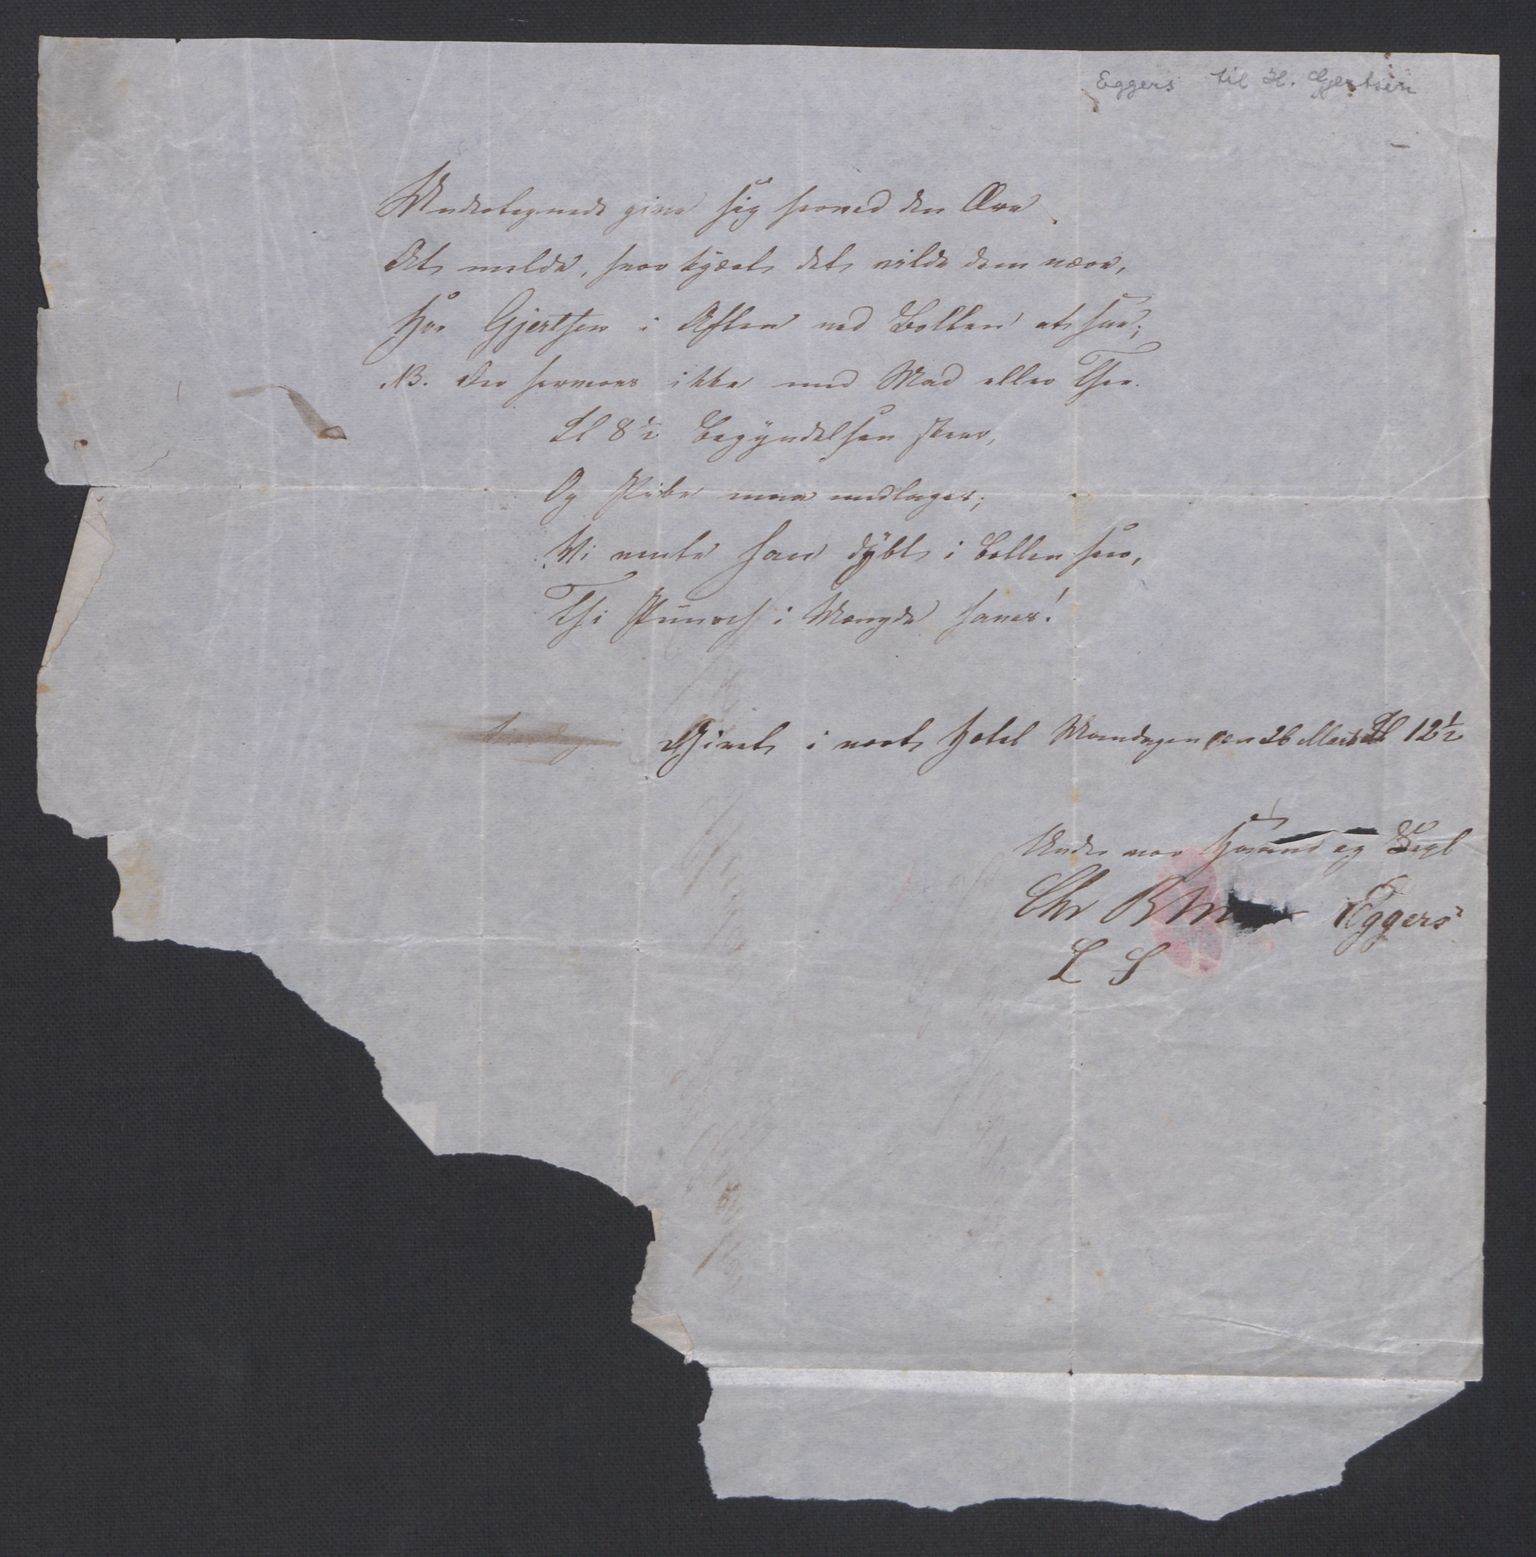 Eggers til H. Gjertsen
Undertegnede give sig herved den Ære
At melde, hvor kjært det vilde dem være,
Hrr Gjertsen i Aften ved Bollen at see;
NB. Der serveres ikke med Mad eller Thee.
Kl 8½ Begyndelsen skeer,
Og Pibe maa medtages;
Vi vente han dybt i Bollen seer,
Thi Punsch i Mængde haves!
Givet i vort Hotel Mandagen den 26 Marts Kl 12½
Under vor Haand og Segl
Chr Eggers
L S